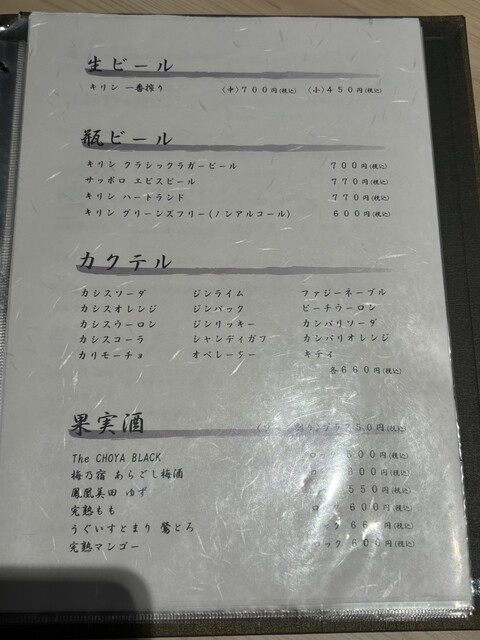 生ビール
キリン 一番搾り (中)700円(税込) (小)450円(税込)
瓶ビール
キリン クラシックラガービール 700円(税込)
サッポロ エビスビール 770円(税込)
キリン ハートランド 770円(税込)
キリン グリーンズフリー(ノンアルコール) 600円(税込)
カクテル
カシスソーダ ジンライム ファジーネーブル
カシスオレンジ ジンバック ピーチウーロン
カシスウーロン ジンリッキー カンパリソーダ
カシスコーラ シャンディガフ カンパリオレンジ
カリモーチョ オペレーター キティ
各660円(税込)
果実酒 プラス50円(税込)
The CHOYA BLACK ロック 600円(税込)
梅乃宿 あらごし梅酒 00円(税込)
鳳凰美田 ゆず 550円(税込)
完熟もも 600円(税込)
うぐいすとまり 鶯とろ ック 66 円(税込)
完熟マンゴー ロック 600円(税込)